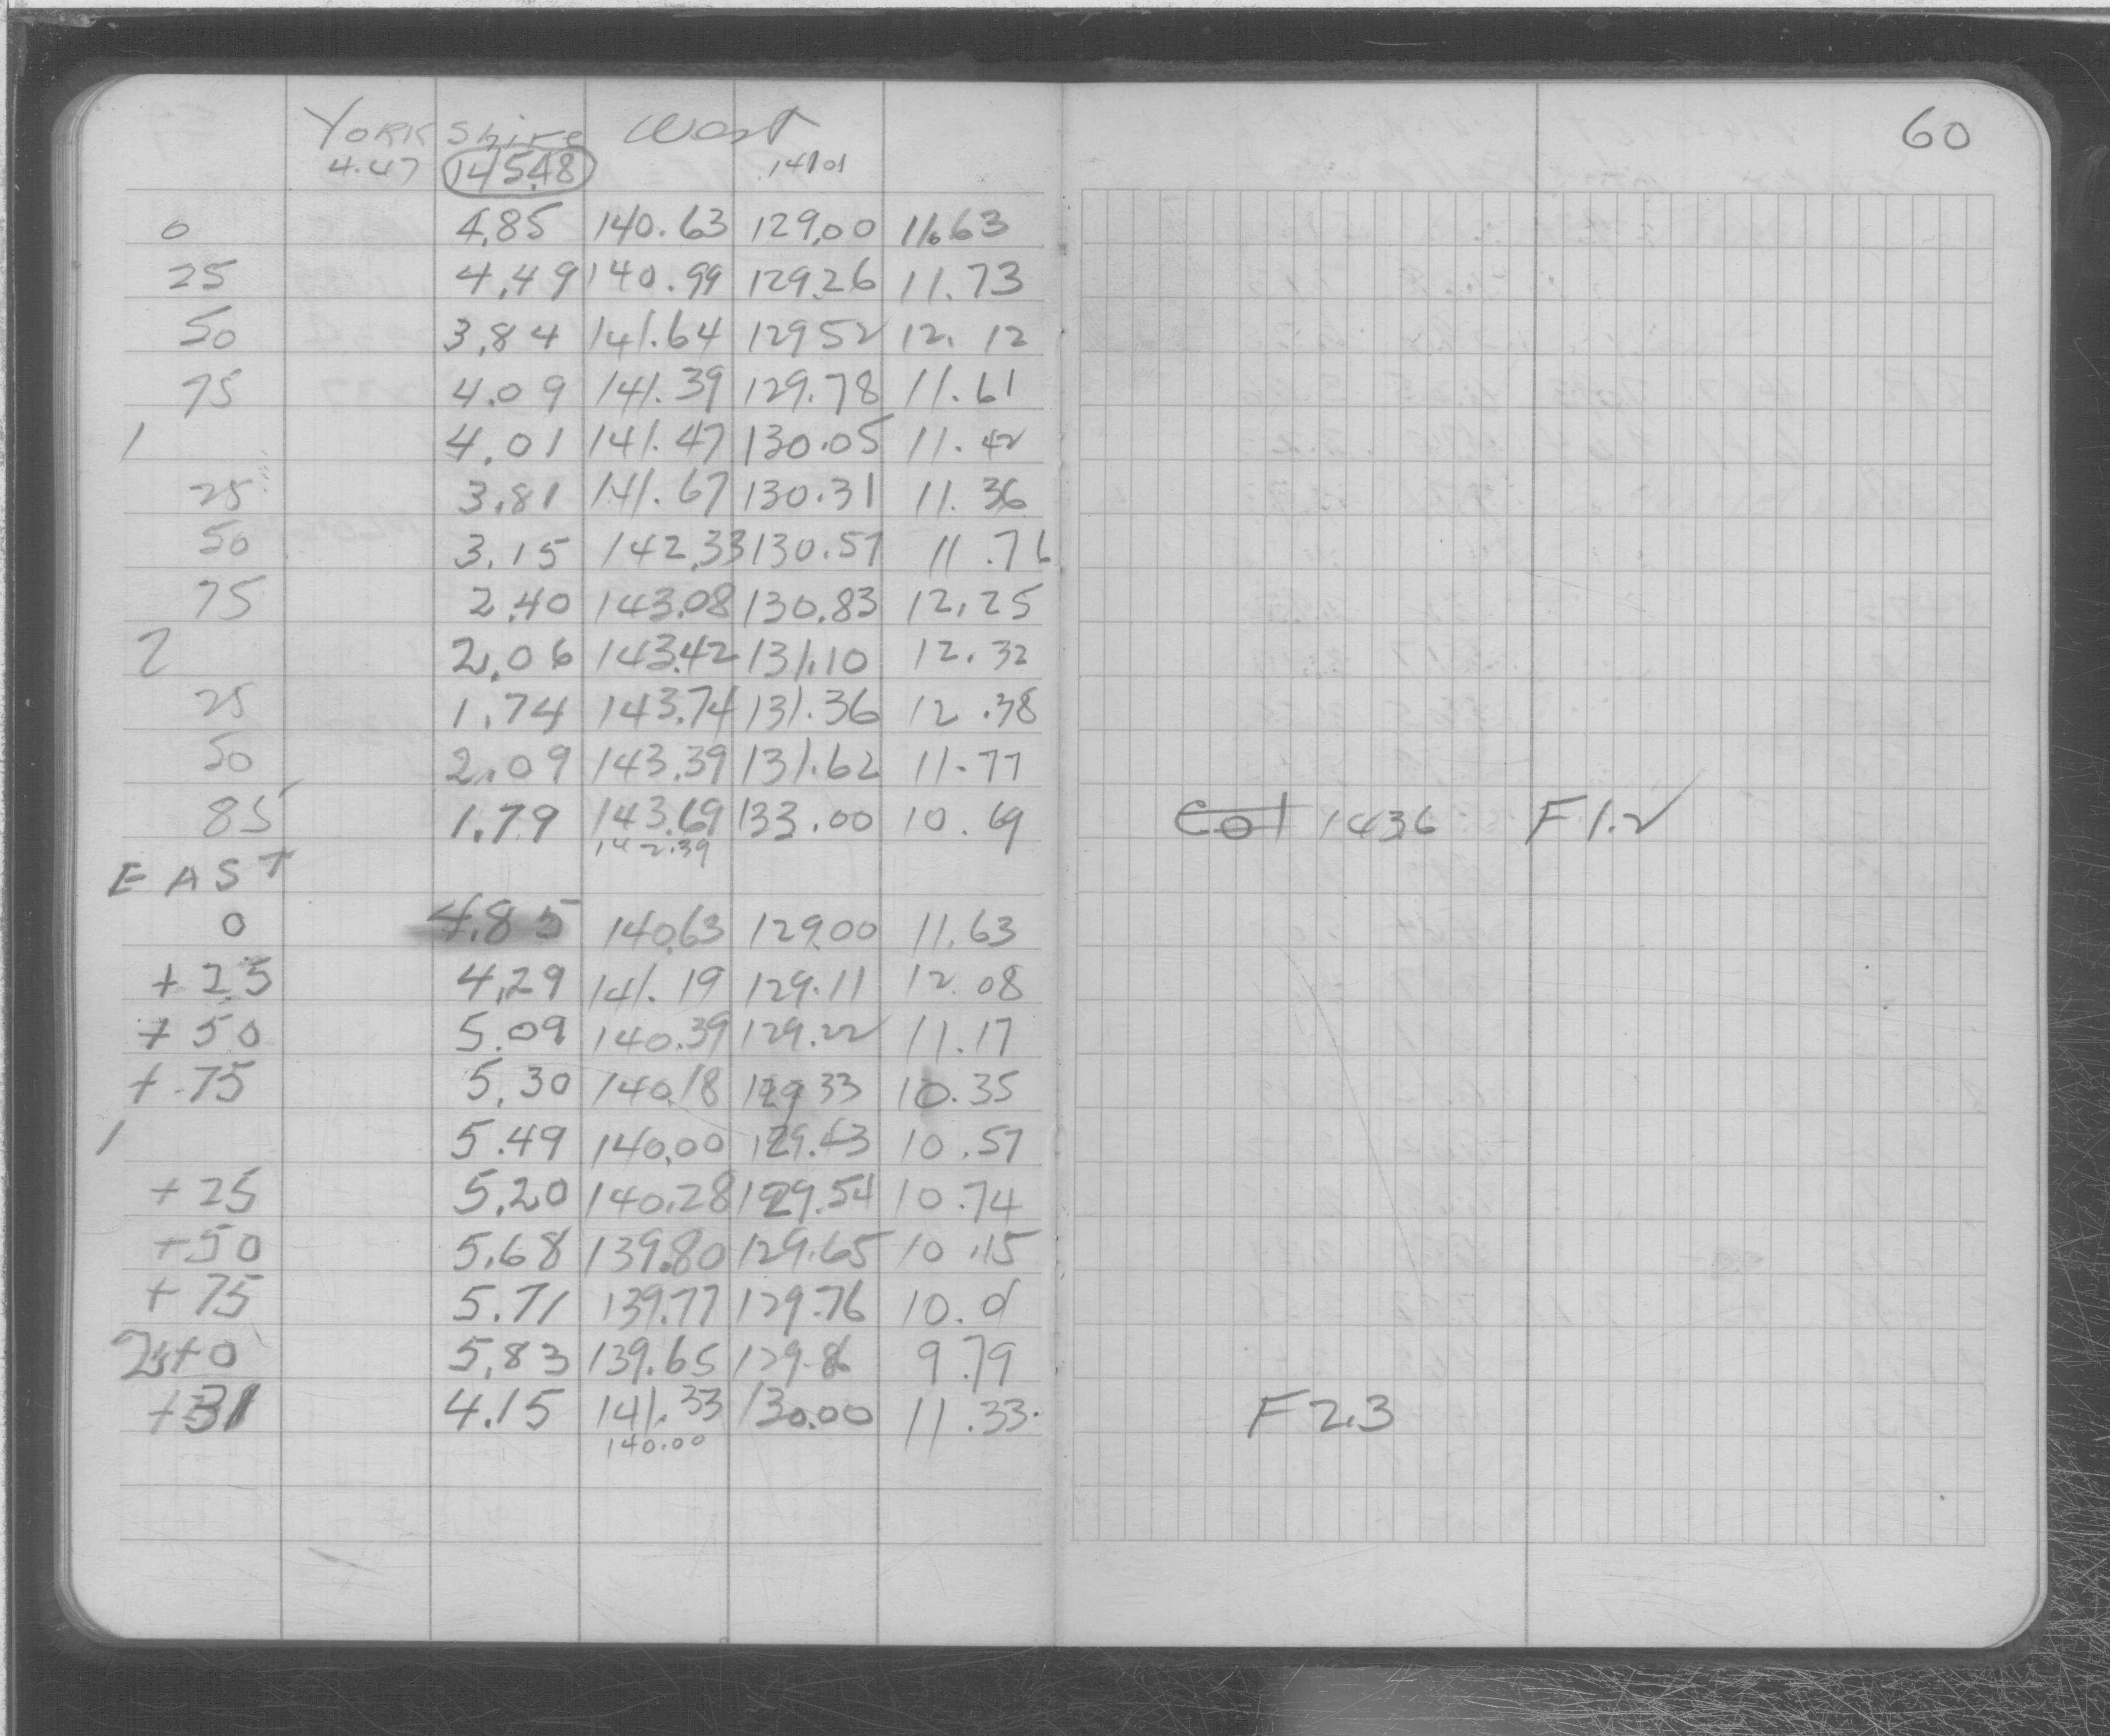 60
YORK Shire West
4.47 145.48 141.01
0 4.85 140.63 129.00 11.63
25 4.49 140.99 129.26 11.73
50 3.84 141.64 129.52 12.12
75 4.09 141.39 129.78 11.61
1 4.01 141.47 130.05 11.42
25 3.81 141.67 130.31 11.36
50 3.15 142.33 130.57 11.76
75 2.40 143.08 130.83 12.25
2 2.06 143.42 131.10 12.32
25 1.74 143.74 131.36 12.38
50 2.09 143.39 131.62 11.77
85 1.79 143.69 133.00 10.69 1436 F1.2
142.39
EAST
0 4.85 140.63 129.00 11.63
+25 4.29 141.19 129.11 12.08
+50 5.09 140.39 129.22 11.17
+75 5.30 140.18 129.33 10.35
1 5.49 140.00 129.43 10.57
+25 5.20 140.28 129.54 10.74
+50 5.68 139.80 129.65 10.15
+75 5.71 139.77 129.76 10.01
2+0 5.83 139.65 129.86 9.79
+31 4.15 141.33 130.00 11.33 F2.3
140.00